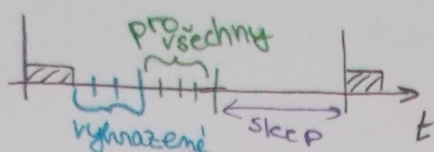 pro
všechny
vyhrazené
sleep
t